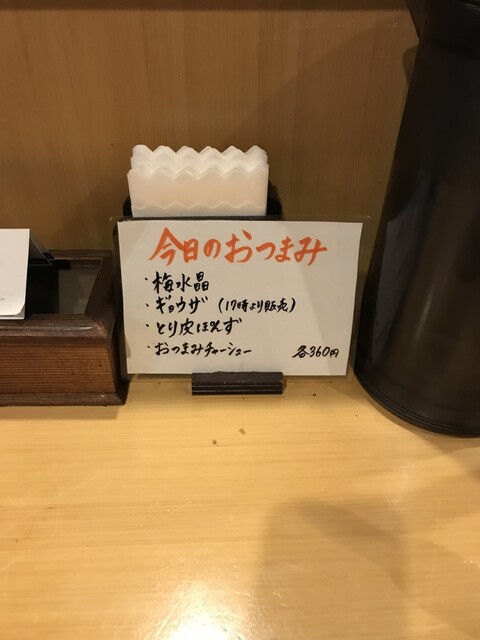 今日のおつまみ
・梅水晶
・ギョウザ (17時より販売)
・とり皮ぽんず
・おつまみチャーシュー 各360円